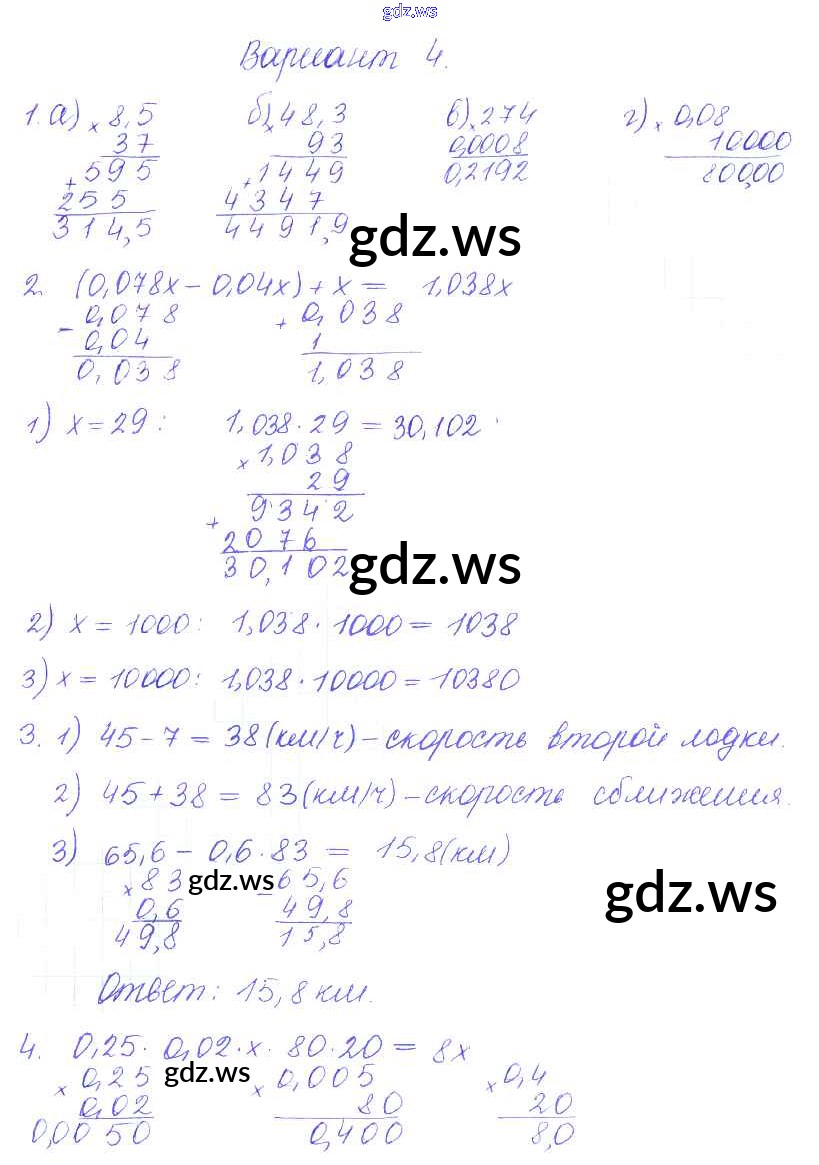 gdz.ws
Вариант 4.
1. а) × 8,5 б) × 48,3 в) × 274 г) × 0,08
37 93 0,0008 10000
+ 595 + 1449 0,2192 800,00
255 4347
314,5 4491,9
gdz.ws
2. (0,078x - 0,04x) + x = 1,038x
- 0,078 + 0,038
0,04 1
0,038 1,038
1) x = 29: 1,038 · 29 = 30,102
× 1,038
29
+ 9342
2076
30,102
gdz.ws
2) x = 1000: 1,038 · 1000 = 1038
3) x = 10000: 1,038 · 10000 = 10380
3. 1) 45 - 7 = 38 (км/ч) - скорость второй лодки.
2) 45 + 38 = 83 (км/ч) - скорость сближения.
3) 65,6 - 0,6 · 83 = 15,8 (км)
× 83 gdz.ws - 65,6
0,6 49,8 gdz.ws
49,8 15,8
Ответ: 15,8 км.
4. 0,25 · 0,02 · x · 80 · 20 = 8x
× 0,25 gdz.ws × 0,005 × 0,4
0,02 80 20
0,0050 0,400 8,0